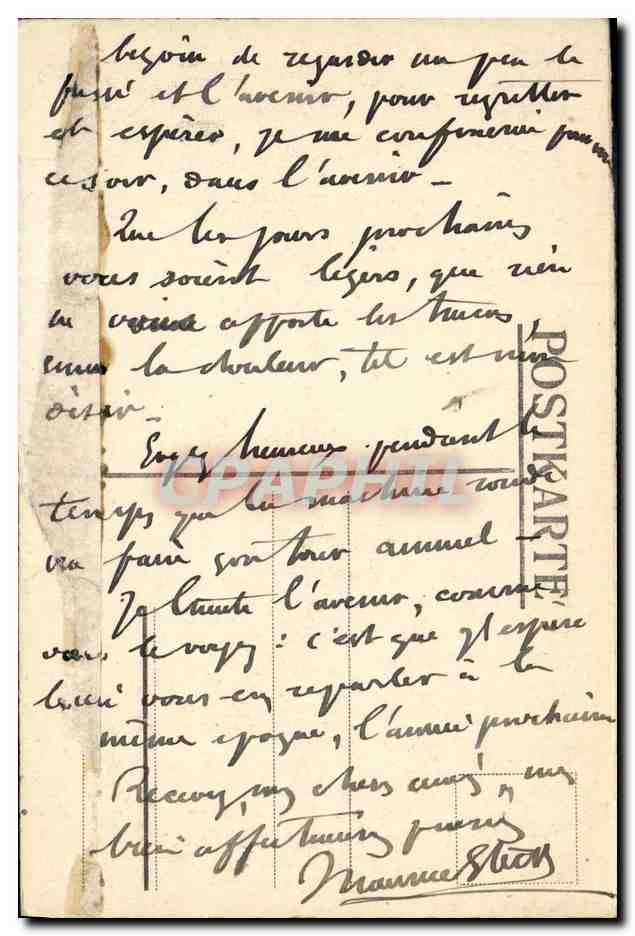 besoin de regarder un peu le
passé et l'avenir, pour regretter
et espérer, je me confinerai pour
ce soir, dans l'avenir _
Que les jours prochains
vous soient légers, que rien
ne vous apporte les tracas,
la douleur, tel est mon
désir _
Soyez heureux pendant le
temps que la machine ronde
va faire son tour annuel _
Je l'avenir, comme
vous le voyez : c'est que j'espère
bien vous en reparler à la
même époque, l'année prochaine
Recevez, mes chers amis, mes
bien affectueuses pensées
Maurice
POSTKARTE
CPAPHIL